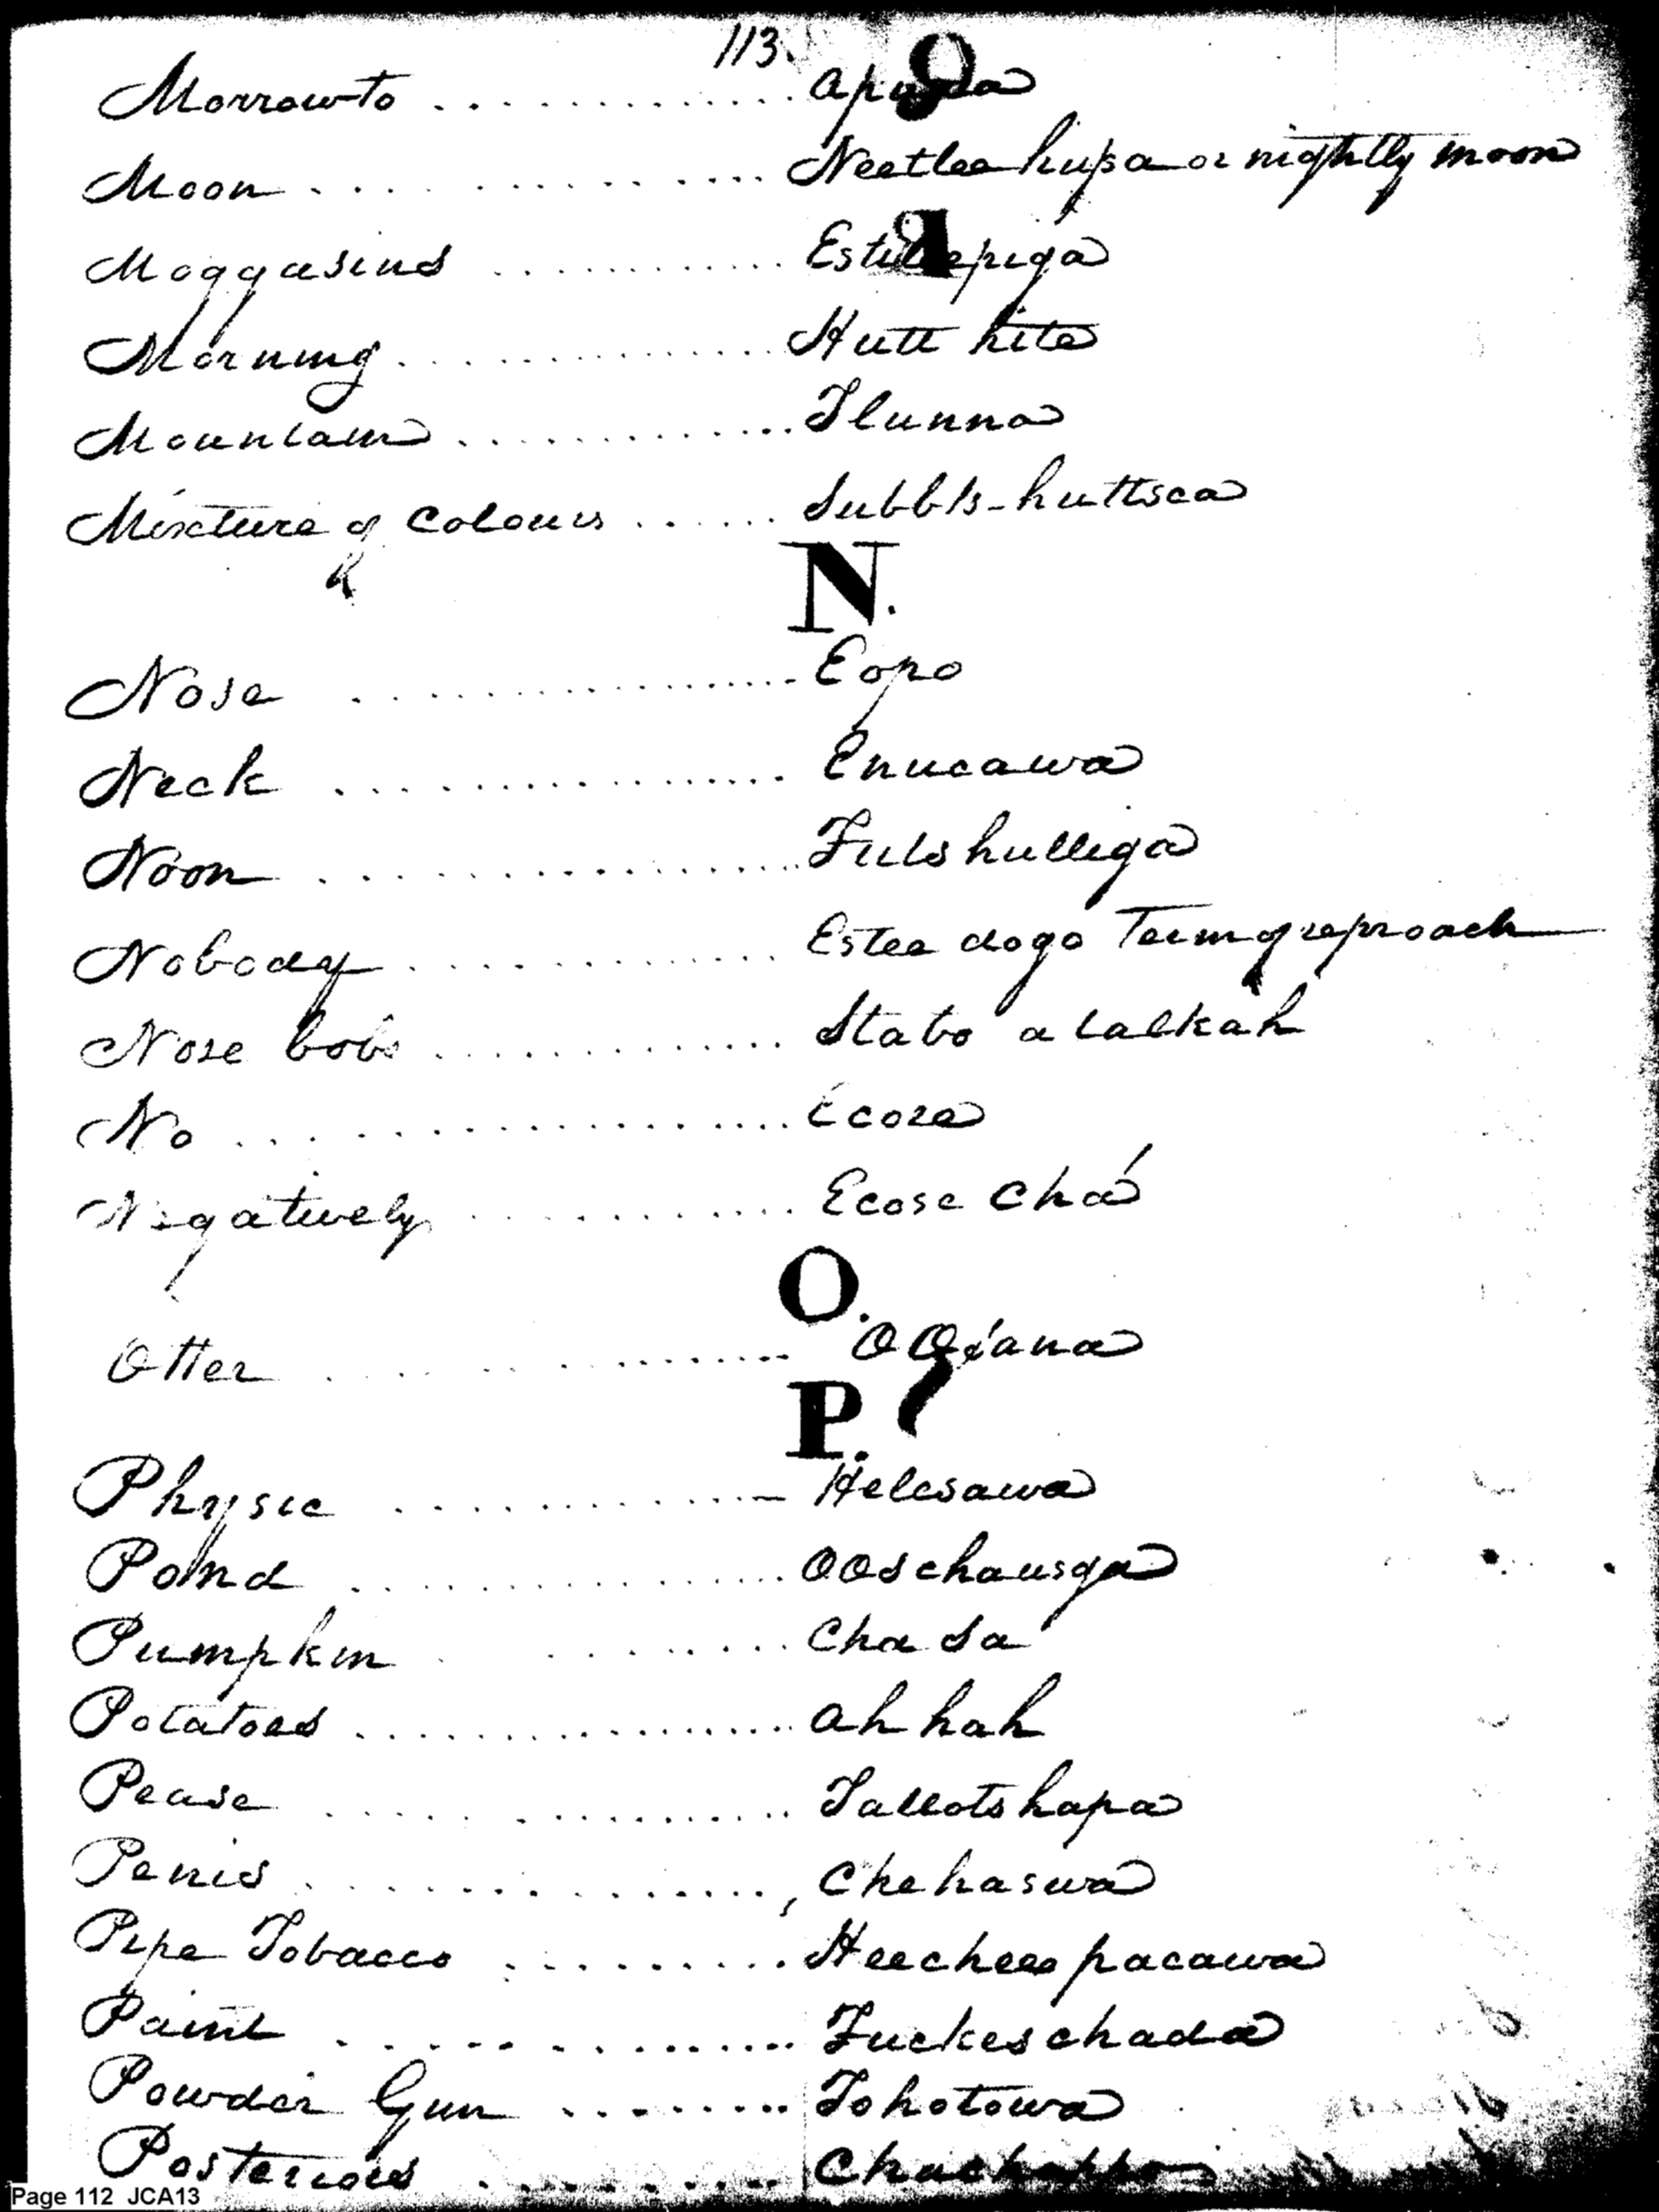 113.
Morrow-to ............. 
Moon ............... Neetlee hupa or nightly moon
Moggasins ............
Morning .............. Hutt hite
Mountain ............. Ilunna
Mixture of Colours ...... Subbls-huttsca
N.
Nose ................. Eopo
Neck ................ Enucawa
Noon ................. Fulshulliga
Nobody .............. Estee dogo Term of reproach
Nose bobs ............. Stabo a lalkah
No .................. Ecose
Negatively ............ Ecose chá
O.
Otter ................
P.
Physic ............. Helesawa
Pond ................ OOschausga
Pumpkin ......... Cha Sa
Potatoes ................. ah hah
Pease ................ Tallotshapa
Penis ................ Chehaswa
Pipe Tobacco ......... Heechee pacawa
Paint ............... Fuckeschada
Powder Gun ........ Tohotowa
Posteriors .........
Page 112 JCA13